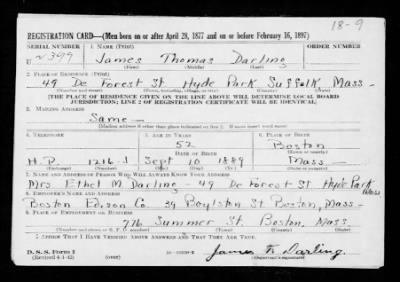 18-9
REGISTRATION CARD—(Men born on or after April 28, 1877 and on or before February 16, 1897)
SERIAL NUMBER 1. NAME (Print) ORDER NUMBER
U2399 James Thomas Darling
(First) (Middle) (Last)
2. PLACE OF RESIDENCE (Print)
49 De Forest St Hyde Park Suffolk Mass—
(Number and street) (Town, township, village, or city) (County) (State)
[THE PLACE OF RESIDENCE GIVEN ON THE LINE ABOVE WILL DETERMINE LOCAL BOARD
JURISDICTION; LINE 2 OF REGISTRATION CERTIFICATE WILL BE IDENTICAL]
3. MAILING ADDRESS
Same—
[Mailing address if other than place indicated on line 2. If same insert word same]
4. TELEPHONE 5. AGE IN YEARS 6. PLACE OF BIRTH
52 Boston
DATE OF BIRTH (Town or county)
H.P. 1216-J Sept 10 1889 Mass—
(Exchange) (Number) (Mo.) (Day) (Yr.) (State or country)
7. NAME AND ADDRESS OF PERSON WHO WILL ALWAYS KNOW YOUR ADDRESS
Mrs. Ethel M. Darling—49 De Forest St Hyde Park Mass
8. EMPLOYER'S NAME AND ADDRESS
Boston Edison Co. 39 Boylston St Boston, Mass—
9. PLACE OF EMPLOYMENT OR BUSINESS
776 Summer St. Boston, Mass
(Number and street or R. F. D. number) (Town) (County) (State)
I AFFIRM THAT I HAVE VERIFIED ABOVE ANSWERS AND THAT THEY ARE TRUE.
D. S. S. Form 1
(Revised 4-1-42) (over) James T. Darling.